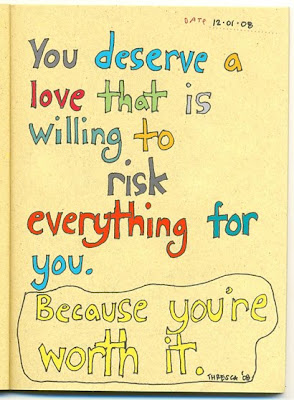 DATE 12·01·08
You deserve a
love that is
willing to
risk
everything for
you.
Because you're
worth it.
THRESCA '08